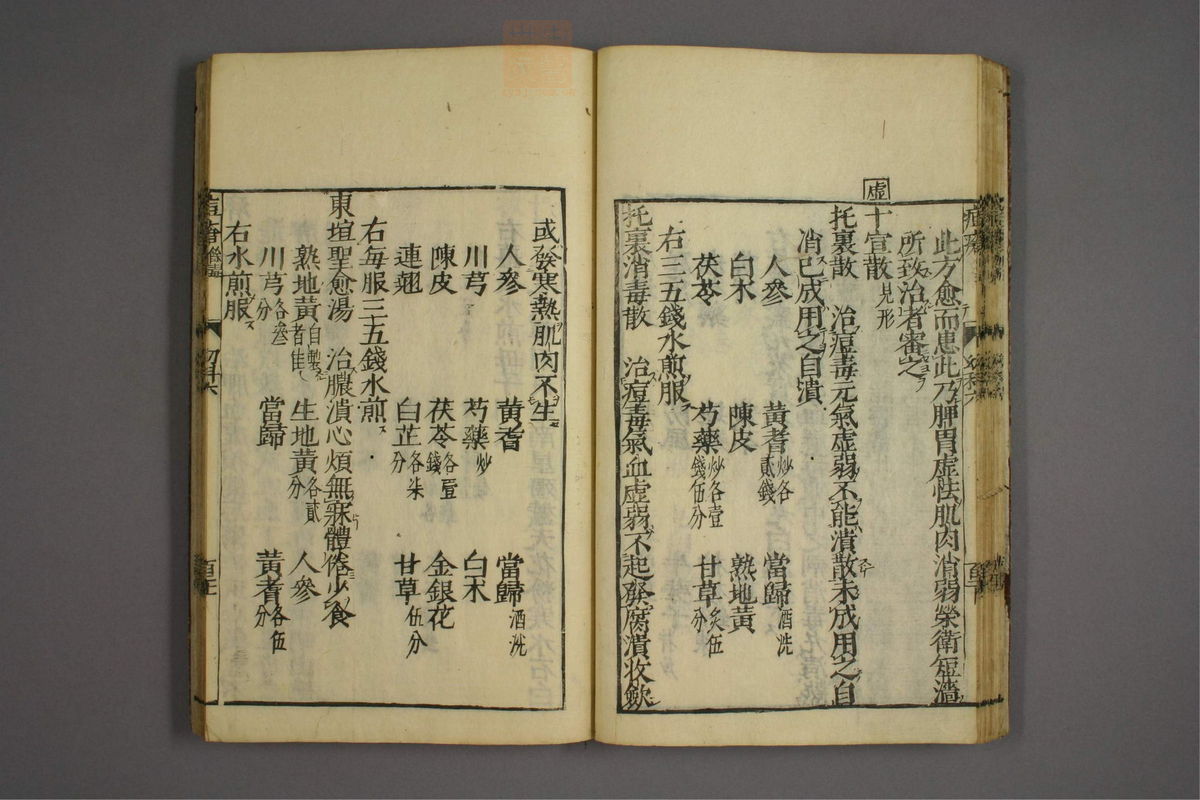 此方愈而患此乃脾胃虛怯肌肉消弱榮衛短濇
所致治者審之
虛
十宣散見形
托裏散 治痘毒元氣虛弱不能潰散未成用之自
消已成用之自潰
人參 黃耆炒各貳錢 當歸酒洗
白朮 陳皮 熟地黃
茯苓 芍藥炒各壹錢伍分 甘草炙伍分
右三五錢水煎服
托裏消毒散 治痘毒氣血虛弱不起發腐潰收斂
或發寒熱肌肉不生
人參 黃耆 當歸酒洗
川芎 芍藥炒 白朮
陳皮 茯苓各壹錢 金銀花
連翹 白芷各柒分 甘草伍分
右每服三五錢水煎
東垣聖愈湯 治膿潰心煩無寐體倦少食
熟地黃自製者佳 生地黃各貳分 人參
川芎各叄分 當歸 黃耆各伍分
右水煎服